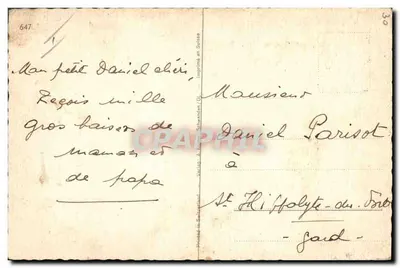 647
30
Mon petit Daniel chéri,
Reçois mille
gros baisers de
maman et
de papa
Monsieur
Daniel Parisot
à
St Hippolyte-du-Fort
- Gard -